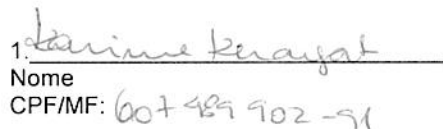 1. Karime Kerayat
Nome
CPF/MF: 607 989 902-91